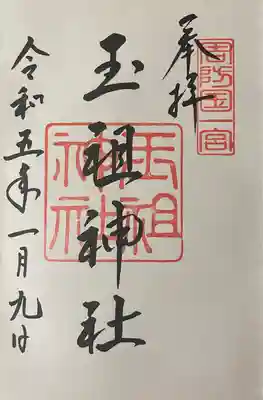 奉拝
周防国一宮
玉祖神社
玉祖神社
令和五年一月九日